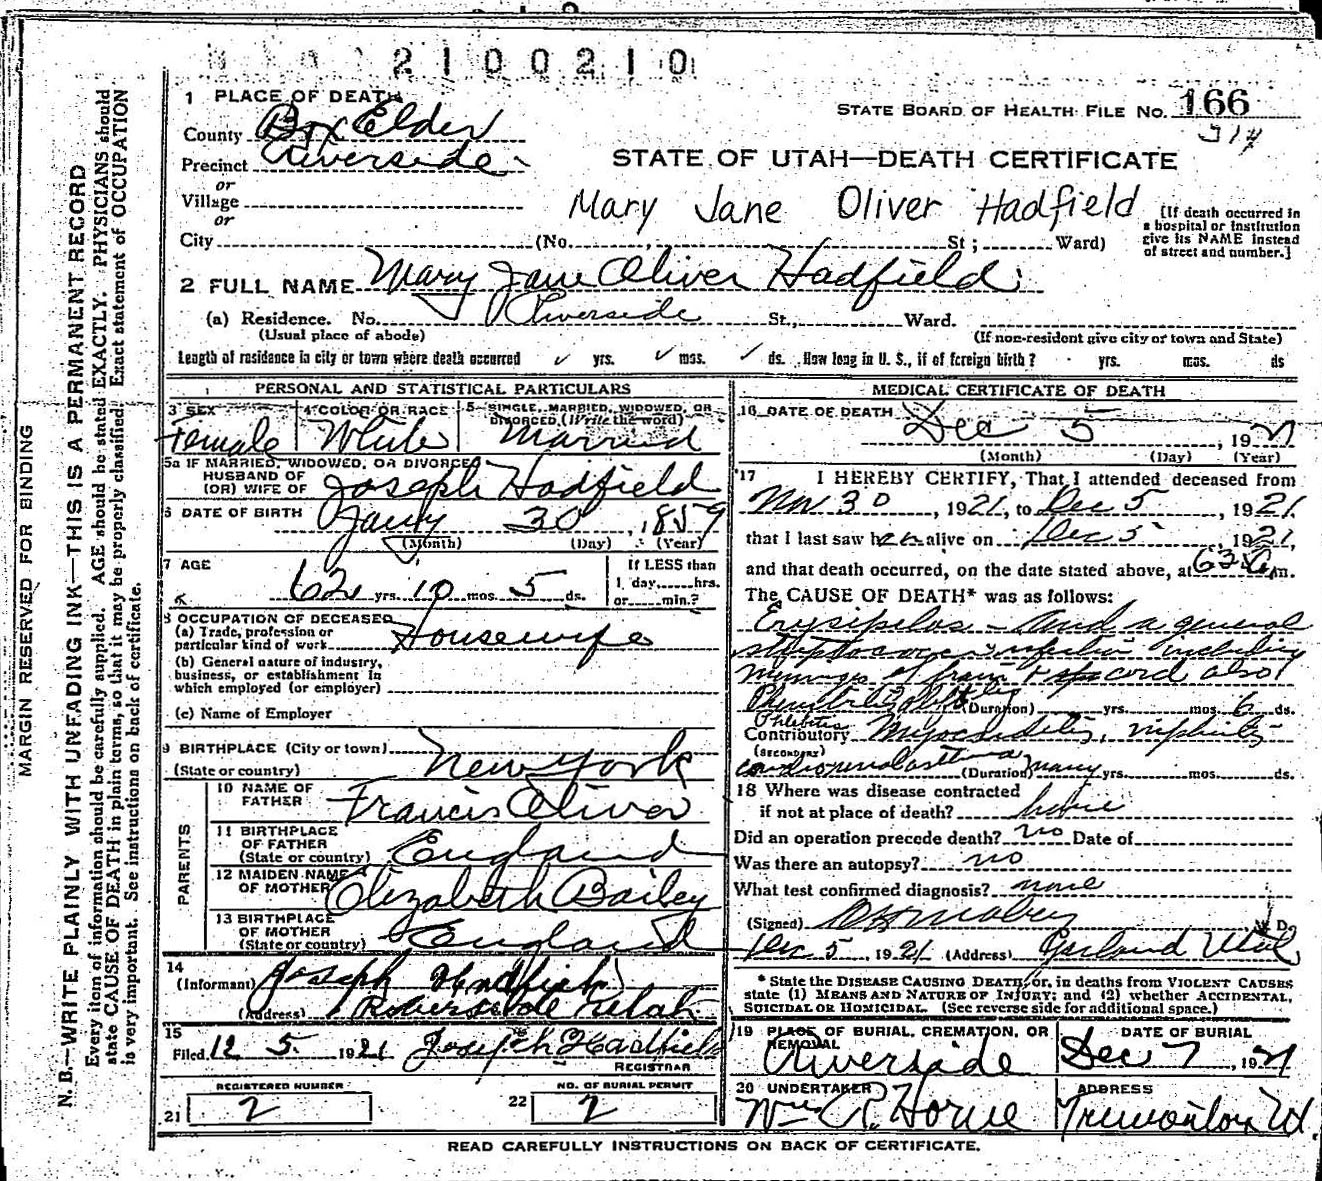 2100210
1 PLACE OF DEATH
STATE BOARD OF HEALTH FILE No. 166
314
County Box Elder
Precinct Riverside
STATE OF UTAH—DEATH CERTIFICATE
or
Village
Mary Jane Oliver Hadfield
or
[If death occurred in a hospital or institution give its NAME instead of street and number.]
City (No. St; Ward)
2 FULL NAME Mary Jane Oliver Hadfield
(a) Residence. No. Riverside St., Ward.
(Usual place of abode) (If non-resident give city or town and State)
Length of residence in city or town where death occurred ✓ yrs. ✓ mos. ✓ ds. How long in U. S., if of foreign birth? yrs. mos. ds
PERSONAL AND STATISTICAL PARTICULARS
3 SEX 4 COLOR OR RACE 5 SINGLE, MARRIED, WIDOWED, OR DIVORCED (Write the word)
Female White Married
5a IF MARRIED, WIDOWED, OR DIVORCED
HUSBAND OF
(OR) WIFE OF Joseph Hadfield
6 DATE OF BIRTH Jany 30, 1859
(Month) (Day) (Year)
7 AGE If LESS than
62 yrs. 10 mos. 5 ds. 1 day, hrs.
or min.?
8 OCCUPATION OF DECEASED
(a) Trade, profession or
particular kind of work Housewife
(b) General nature of industry,
business, or establishment in
which employed (or employer)
(c) Name of Employer
9 BIRTHPLACE (City or town)
(State or country) New York
PARENTS
10 NAME OF
FATHER Francis Oliver
11 BIRTHPLACE
OF FATHER
(State or country) England
12 MAIDEN NAME
OF MOTHER Elizabeth Bailey
13 BIRTHPLACE
OF MOTHER
(State or country) England
14
(Informant) Joseph Hadfield
(Address) Riverside Utah
15
Filed 12 5, 1921 Joseph Hadfield
REGISTRAR
REGISTERED NUMBER NO. OF BURIAL PERMIT
21 2 22 2
MEDICAL CERTIFICATE OF DEATH
16 DATE OF DEATH Dec 5, 1921
(Month) (Day) (Year)
17 I HEREBY CERTIFY, That I attended deceased from
Nov 30, 1921, to Dec 5, 1921
that I last saw her alive on Dec 5, 1921,
and that death occurred, on the date stated above, at m.
The CAUSE OF DEATH* was as follows:
Erysipelas - and a general
infection including
cord also
(Duration) yrs. mos. 6 ds.
Phlebitis
Contributory Myocarditis, nephritis
(SECONDARY)
(Duration) many yrs. mos. ds.
18 Where was disease contracted
if not at place of death? home
Did an operation precede death? no Date of
Was there an autopsy? no
What test confirmed diagnosis? none
(Signed) D.
Dec 5, 1921 (Address) Garland Utah
* State the DISEASE CAUSING DEATH, or, in deaths from VIOLENT CAUSES
state (1) MEANS AND NATURE OF INJURY; and (2) whether ACCIDENTAL,
SUICIDAL OR HOMICIDAL. (See reverse side for additional space.)
19 PLACE OF BURIAL, CREMATION, OR REMOVAL DATE OF BURIAL
Riverside Dec 7, 1921
20 UNDERTAKER ADDRESS
Wm R. Horne Tremonton Ut.
READ CAREFULLY INSTRUCTIONS ON BACK OF CERTIFICATE.
MARGIN RESERVED FOR BINDING
N. B.—WRITE PLAINLY WITH UNFADING INK—THIS IS A PERMANENT RECORD
Every item of information should be carefully supplied. AGE should be stated EXACTLY. PHYSICIANS should
state CAUSE OF DEATH in plain terms, so that it may be properly classified. Exact statement of OCCUPATION
is very important. See instructions on back of certificate.